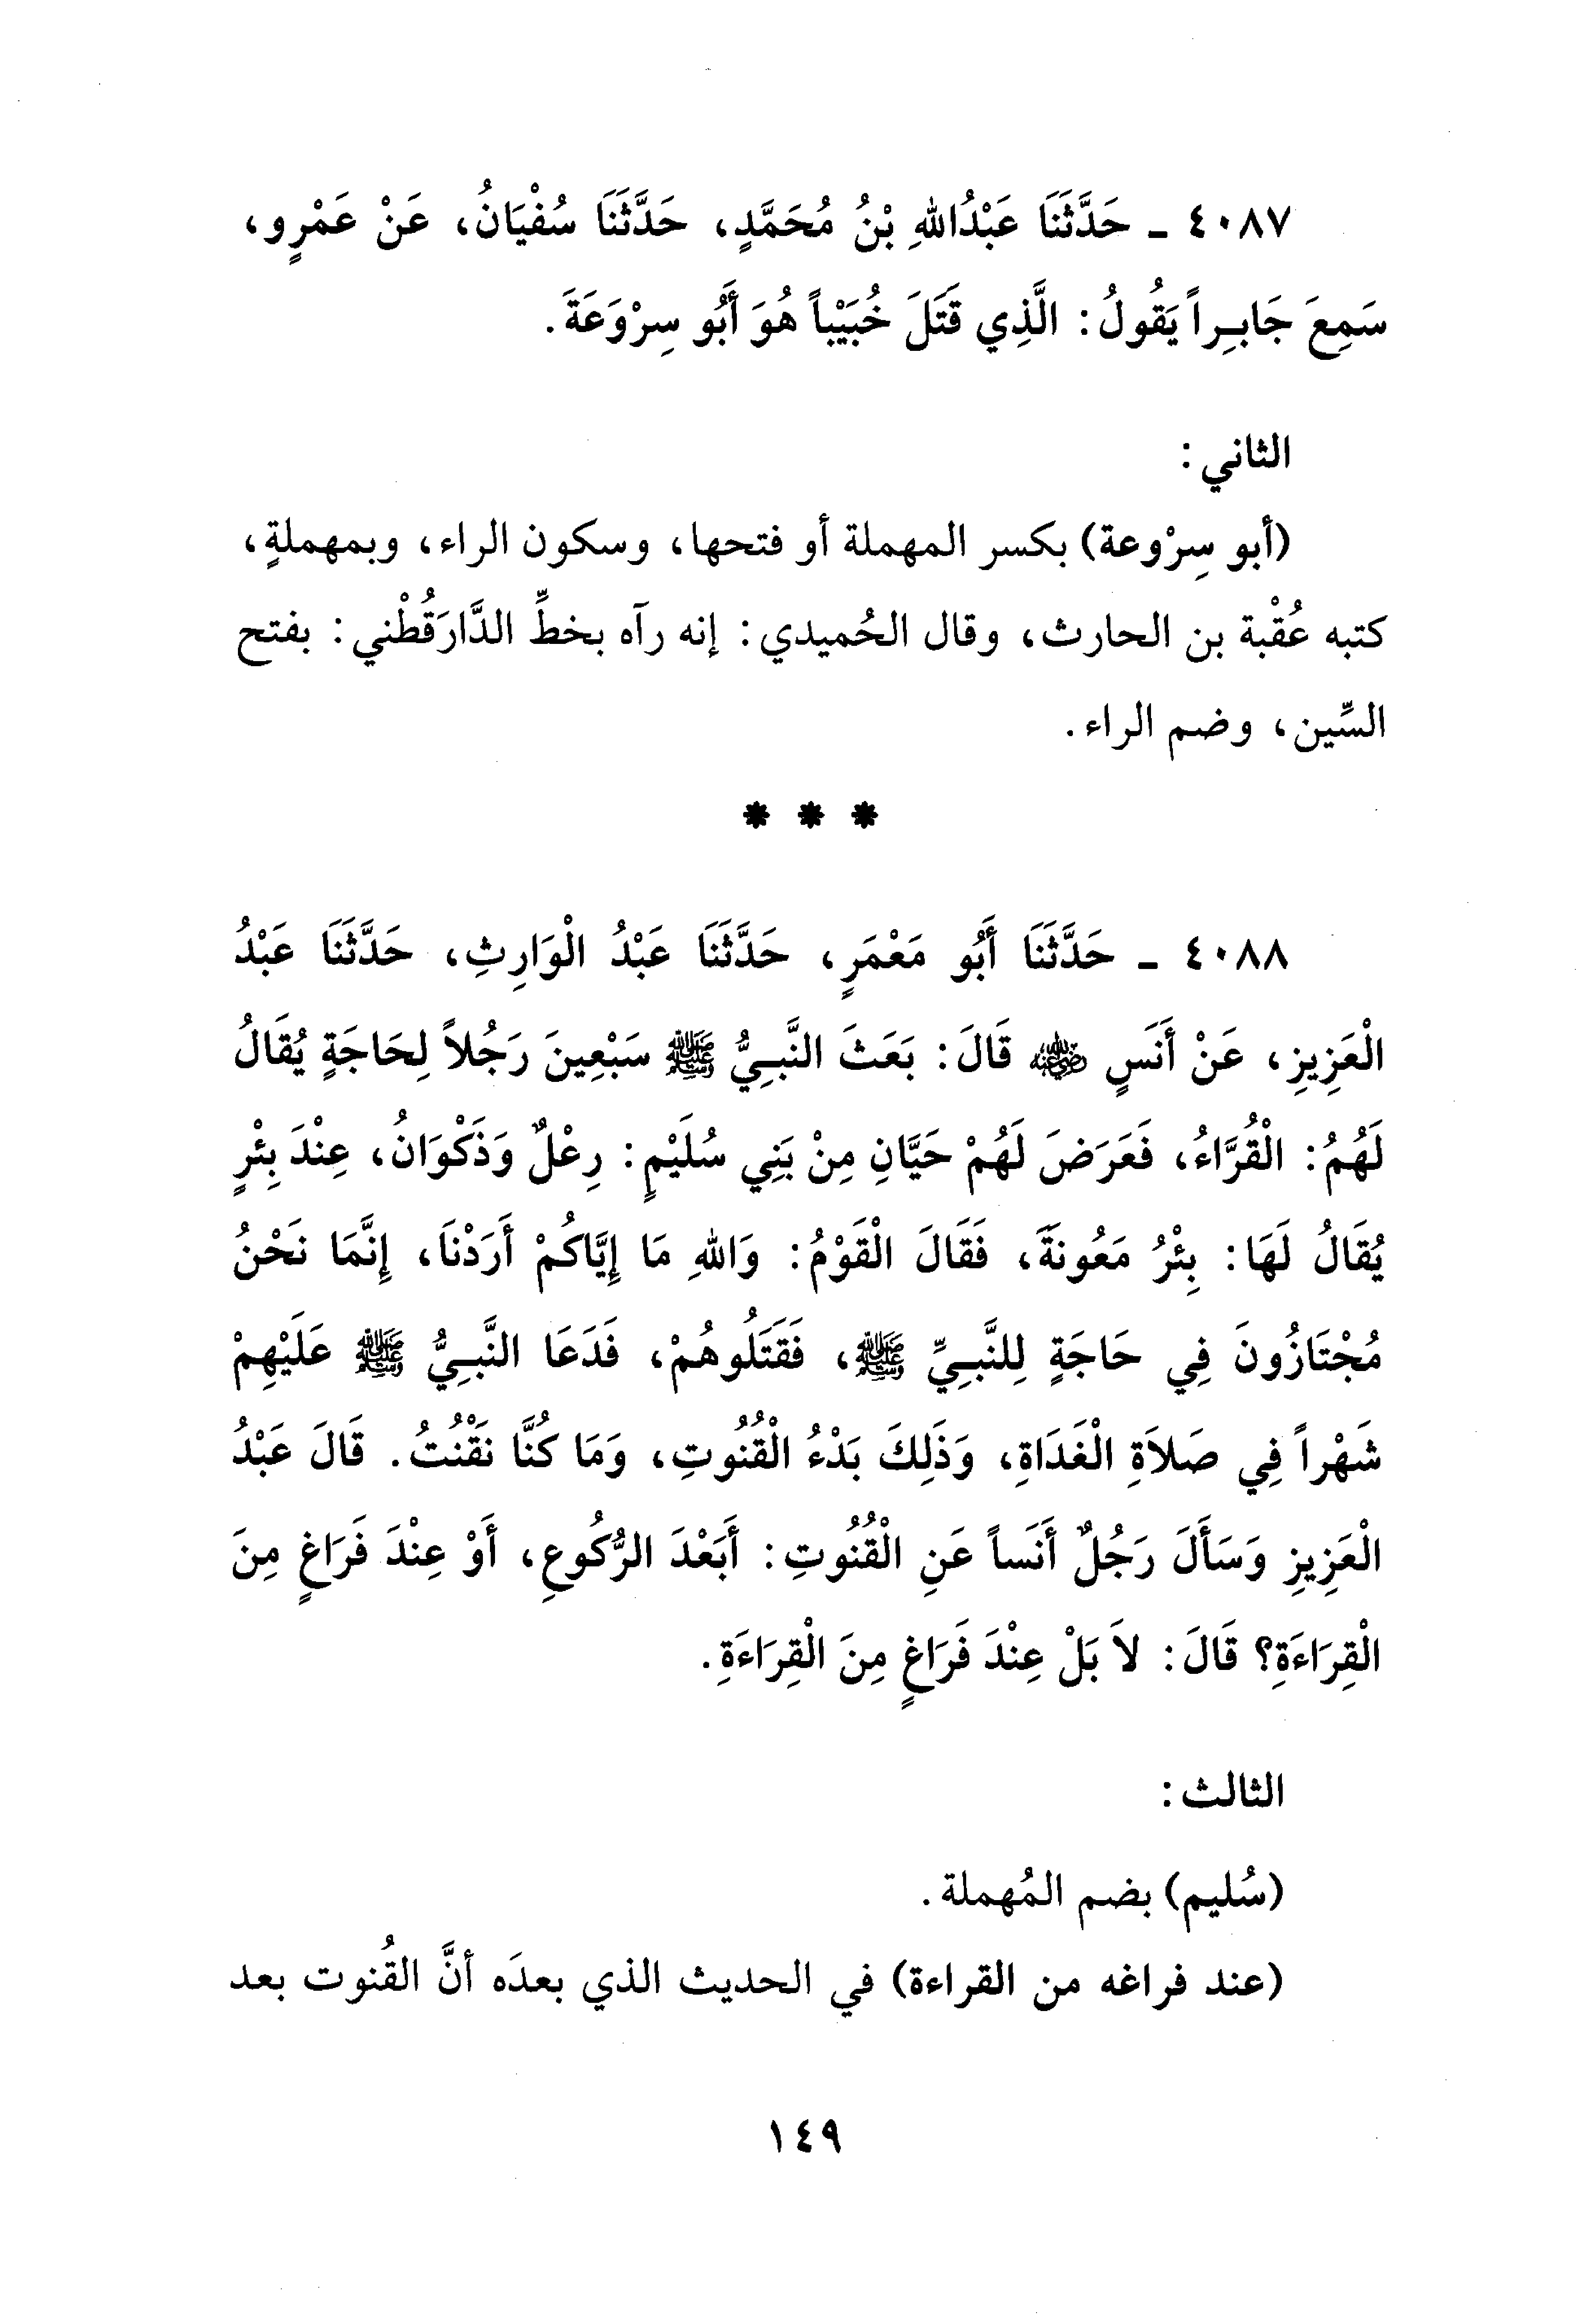 ٤٠٨٧ ـ حَدَّثَنَا عَبْدُاللهِ بْنُ مُحَمَّدٍ، حَدَّثَنَا سُفْيَانُ، عَنْ عَمْرٍو،
سَمِعَ جَابِراً يَقُولُ: الَّذِي قَتَلَ خُبَيْباً هُوَ أَبُو سِرْوَعَةَ.
الثاني:
(أبو سِرْوعة) بكسر المهملة أو فتحها، وسكون الراء، وبمهملةٍ،
كتبه عُقْبة بن الحارث، وقال الحُميدي: إنه رآه بخطِّ الدَّارَقُطْني: بفتح
السِّين، وضم الراء.
* * *
٤٠٨٨ ـ حَدَّثَنَا أَبُو مَعْمَرٍ، حَدَّثَنَا عَبْدُ الْوَارِثِ، حَدَّثَنَا عَبْدُ
الْعَزِيزِ، عَنْ أَنَسٍ رضي الله عنه قَالَ: بَعَثَ النَّبِيُّ ﷺ سَبْعِينَ رَجُلاً لِحَاجَةٍ يُقَالُ
لَهُمُ: الْقُرَّاءُ، فَعَرَضَ لَهُمْ حَيَّانِ مِنْ بَنِي سُلَيْمٍ: رِعْلٌ وَذَكْوَانُ، عِنْدَ بِئْرٍ
يُقَالُ لَهَا: بِئْرُ مَعُونَةَ، فَقَالَ الْقَوْمُ: وَاللهِ مَا إِيَّاكُمْ أَرَدْنَا، إِنَّمَا نَحْنُ
مُجْتَازُونَ فِي حَاجَةٍ لِلنَّبِيِّ ﷺ، فَقَتَلُوهُمْ، فَدَعَا النَّبِيُّ ﷺ عَلَيْهِمْ
شَهْراً فِي صَلاَةِ الْغَدَاةِ، وَذَلِكَ بَدْءُ الْقُنُوتِ، وَمَا كُنَّا نَقْنُتُ. قَالَ عَبْدُ
الْعَزِيزِ وَسَأَلَ رَجُلٌ أَنَساً عَنِ الْقُنُوتِ: أَبَعْدَ الرُّكُوعِ، أَوْ عِنْدَ فَرَاغٍ مِنَ
الْقِرَاءَةِ؟ قَالَ: لاَ بَلْ عِنْدَ فَرَاغٍ مِنَ الْقِرَاءَةِ.
الثالث:
(سُليم) بضم المُهملة.
(عند فراغه من القراءة) في الحديث الذي بعدَه أنَّ القُنوت بعد
١٤٩